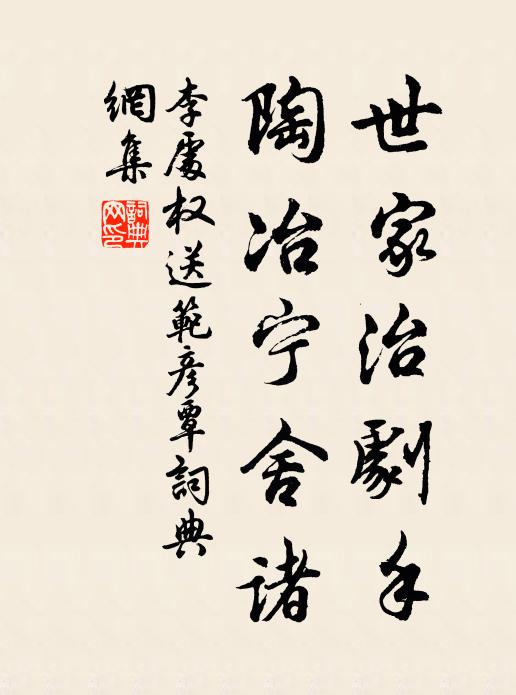 世家治劇手
陶冶宁舍諸
李處权送範彦覃詞典
網集
詞典
网印